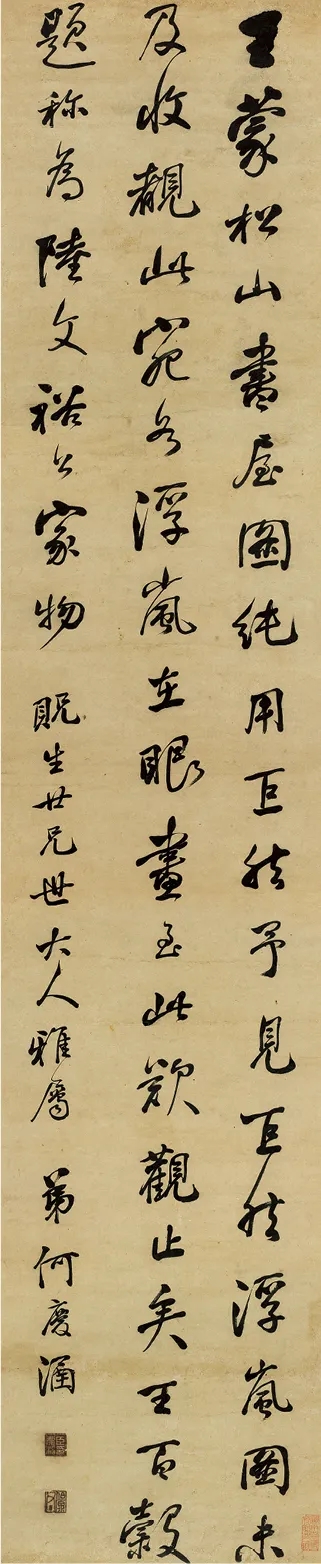 王蒙松山書屋圖純用巨然予見巨然浮嵐圖未
及收覩此宛若浮嵐在眼畫至此歎觀止矣王百穀
題称為陸文裕公家物 貺生廿兄世大人雅屬 弟何慶涵